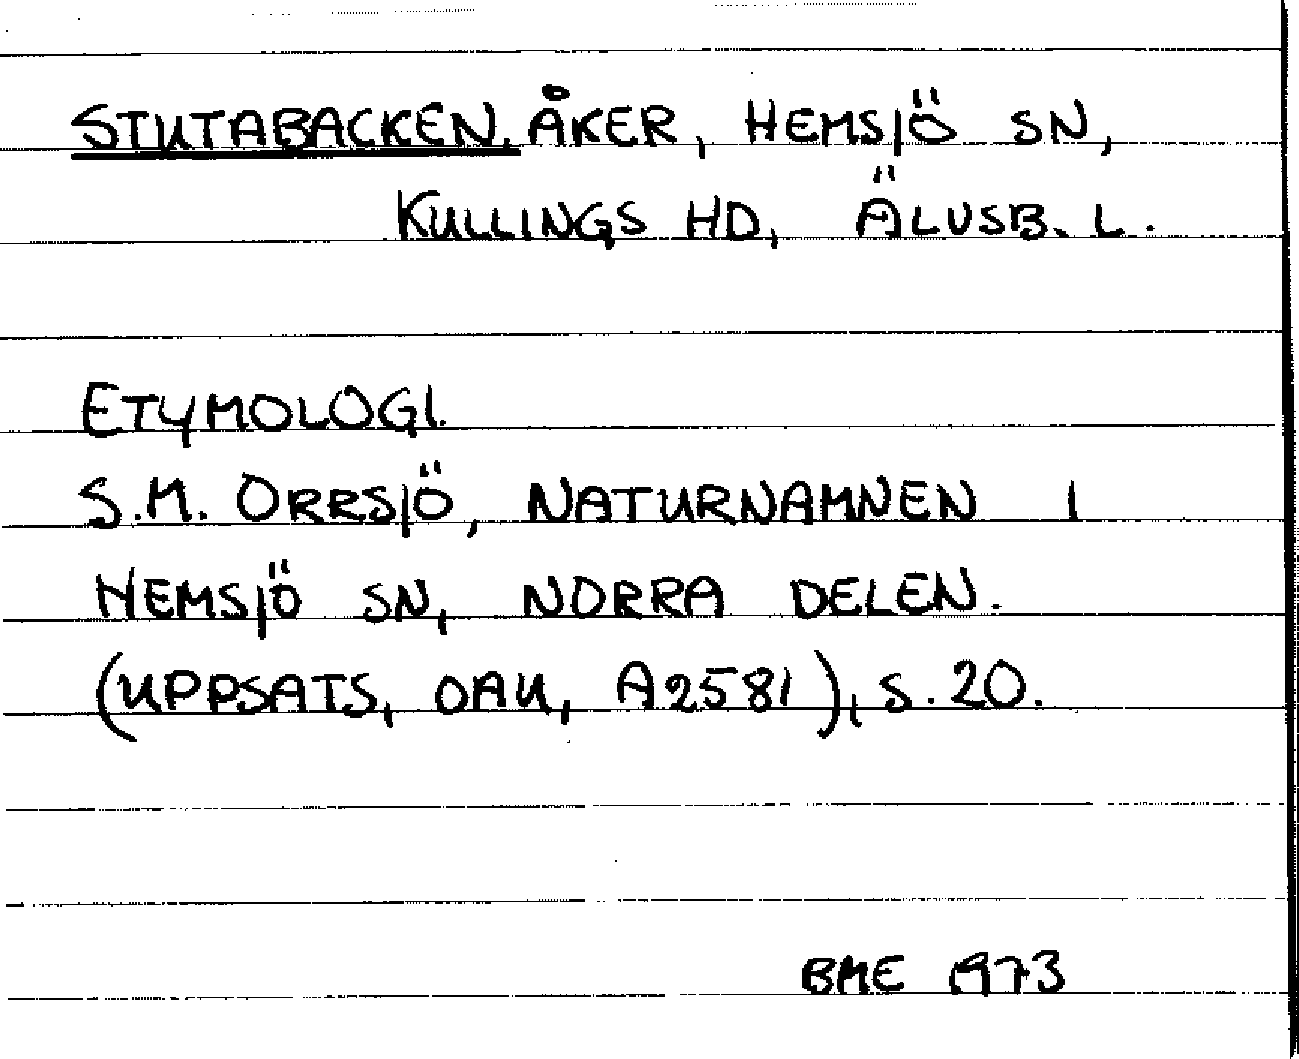 STUTABACKEN. ÅKER, HEMSJÖ SN,
KULLINGS HD, ÄLVSB. L.
ETYMOLOGI.
S.M. ORRSJÖ, NATURNAMNEN I
HEMSJÖ SN, NORRA DELEN.
(UPPSATS, OAU, A2581), S. 20.
BME 1973